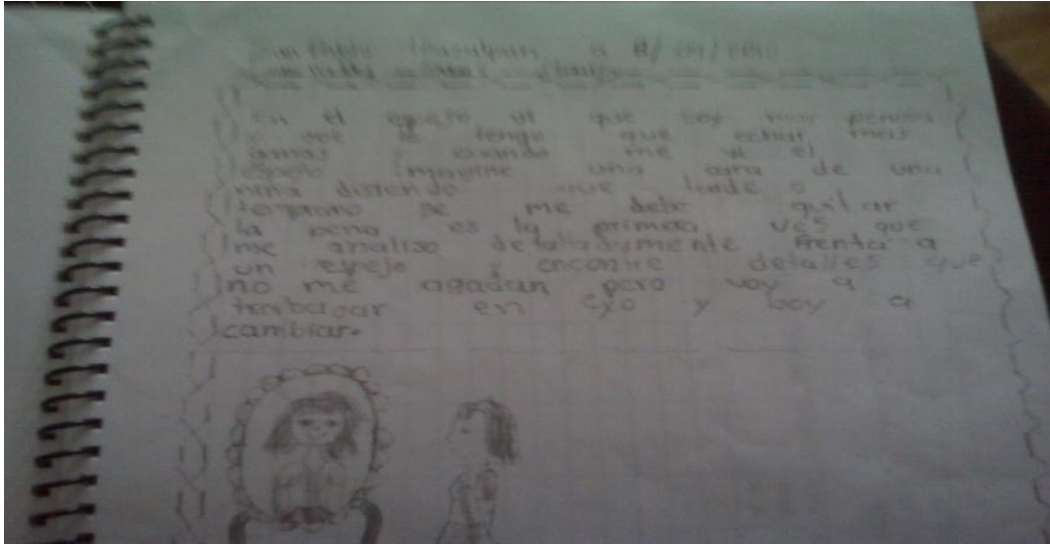 En el espejo vi que soy muy penosa
y que le tengo que echar mas
ganas y cuando me vi el
espejo imagine una cara de una
niña disiendo que tarde o
temprano se me debe quitar
la pena es la primera ves que
me analiso detalladamente frenta a
un espejo y encontre detalles que
no me agadan pero voy a
trabajar en eyo y boy a
cambiar.